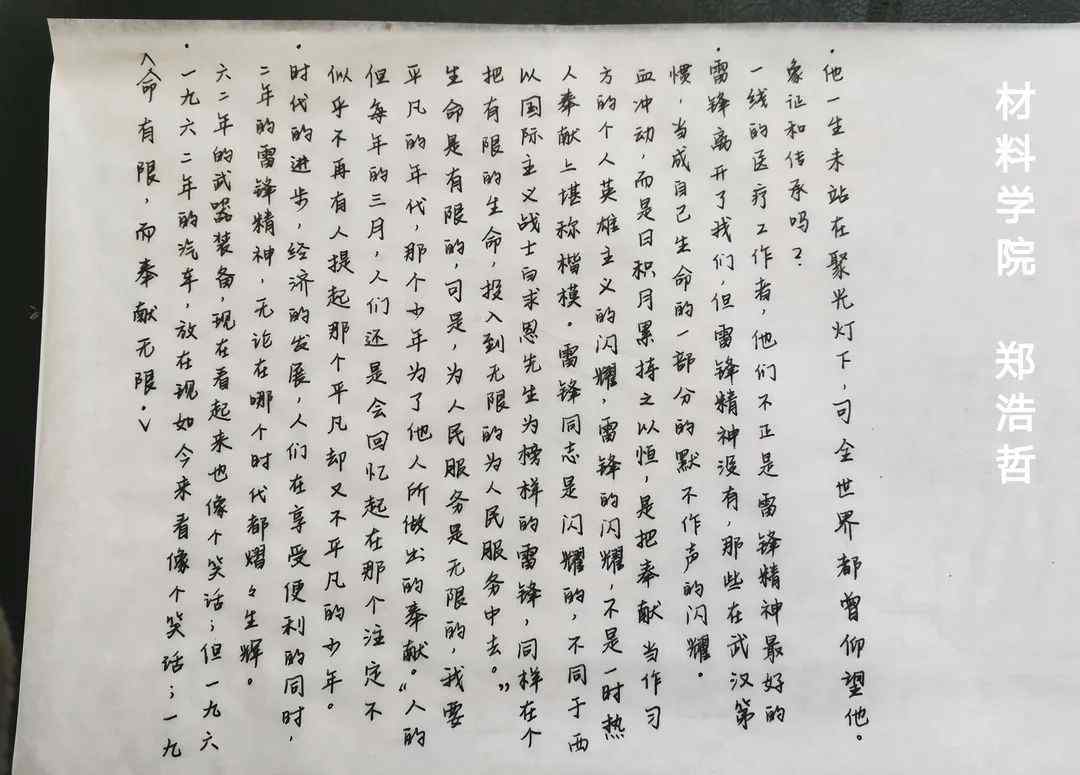 《命有限，而奉献无限。》
·一九六二年的汽车，放在现如今来看像个笑话；一九
六二年的武器装备，现在看起来也像个笑话；但一九六
二年的雷锋精神，无论在哪个时代都熠々生辉。
·时代的进步，经济的发展，人们在享受便利的同时，
似乎不再有人提起那个平凡却又不平凡的少年。
但每年的三月，人们还是会回忆起在那个注定不
平凡的年代，那个少年为了他人所做出的奉献。“人的
生命是有限的，可是，为人民服务是无限的，我要
把有限的生命，投入到无限的为人民服务中去。”
以国际主义战士白求恩先生为榜样的雷锋，同样在个
人奉献上堪称楷模。雷锋同志是闪耀的，不同于西
方的个人英雄主义的闪耀，雷锋的闪耀，不是一时热
血冲动，而是日积月累持之以恒，是把奉献当作习
惯，当成自己生命的一部分的默不作声的闪耀。
·雷锋离开了我们，但雷锋精神没有，那些在武汉第
一线的医疗工作者，他们不正是雷锋精神最好的
象征和传承吗？
·他一生未站在聚光灯下，可全世界都曾仰望他。
材料学院 郑浩哲